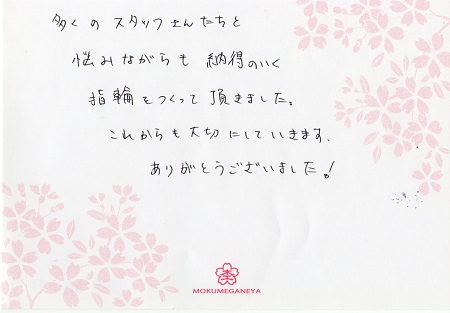 多くの スタッフさんたちと
悩みながらも 納得のいく
指輪をつくって頂きました。
これからも大切にしていきます.
ありがとうございました!
MOKUMEGANEYA